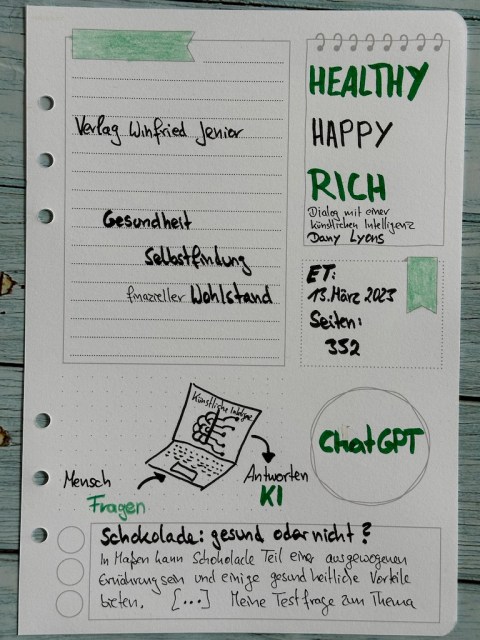 HEALTHY
HAPPY
RICH
Dialog mit einer
künstlichen Intelligenz
Dany Lyons
Verlag Winfried Jenior
Gesundheit
Selbstfindung
finazieller Wohlstand
ET:
13. März 2023
Seiten:
352
Künstliche Intelligenz
ChatGPT
Mensch
Fragen
Antworten
KI
Schokolade: gesund oder nicht?
In Maßen kann Schokolade Teil einer ausgewogenen
Ernährung sein und einige gesundheitliche Vorteile
bieten. [...] Meine Testfrage zum Thema